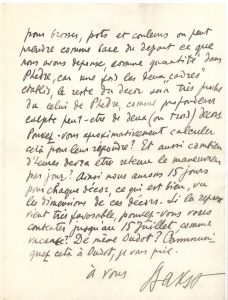 pour brosses, pots et couleurs on peut
prendre comme base du depart ce que
nous avons depensé, comme quantité dans
Phèdre, car une fois les deux "cadres"
etablis, le reste du decor sera très proche
du celui de Phèdre, comme profondeur
excepte peut-etre de deux (ou trois) decors
Pouvez-vous approximativement calculer
cela pour leur repondre? Et aussi combien
d'heures devra etre retenu le
par jour? Ainsi nous aurons 15 jours
pour chaque décor, ce qui est bien, vu
les dimensions de ces décors. Si la reponse
vient très favorable, pouvez-vous vous
contenter jusqu'au 15 Juillet comme
vacance? De même Oudot? Communi-
quez cela à Oudot, je vous prie.
à vous
Bakst